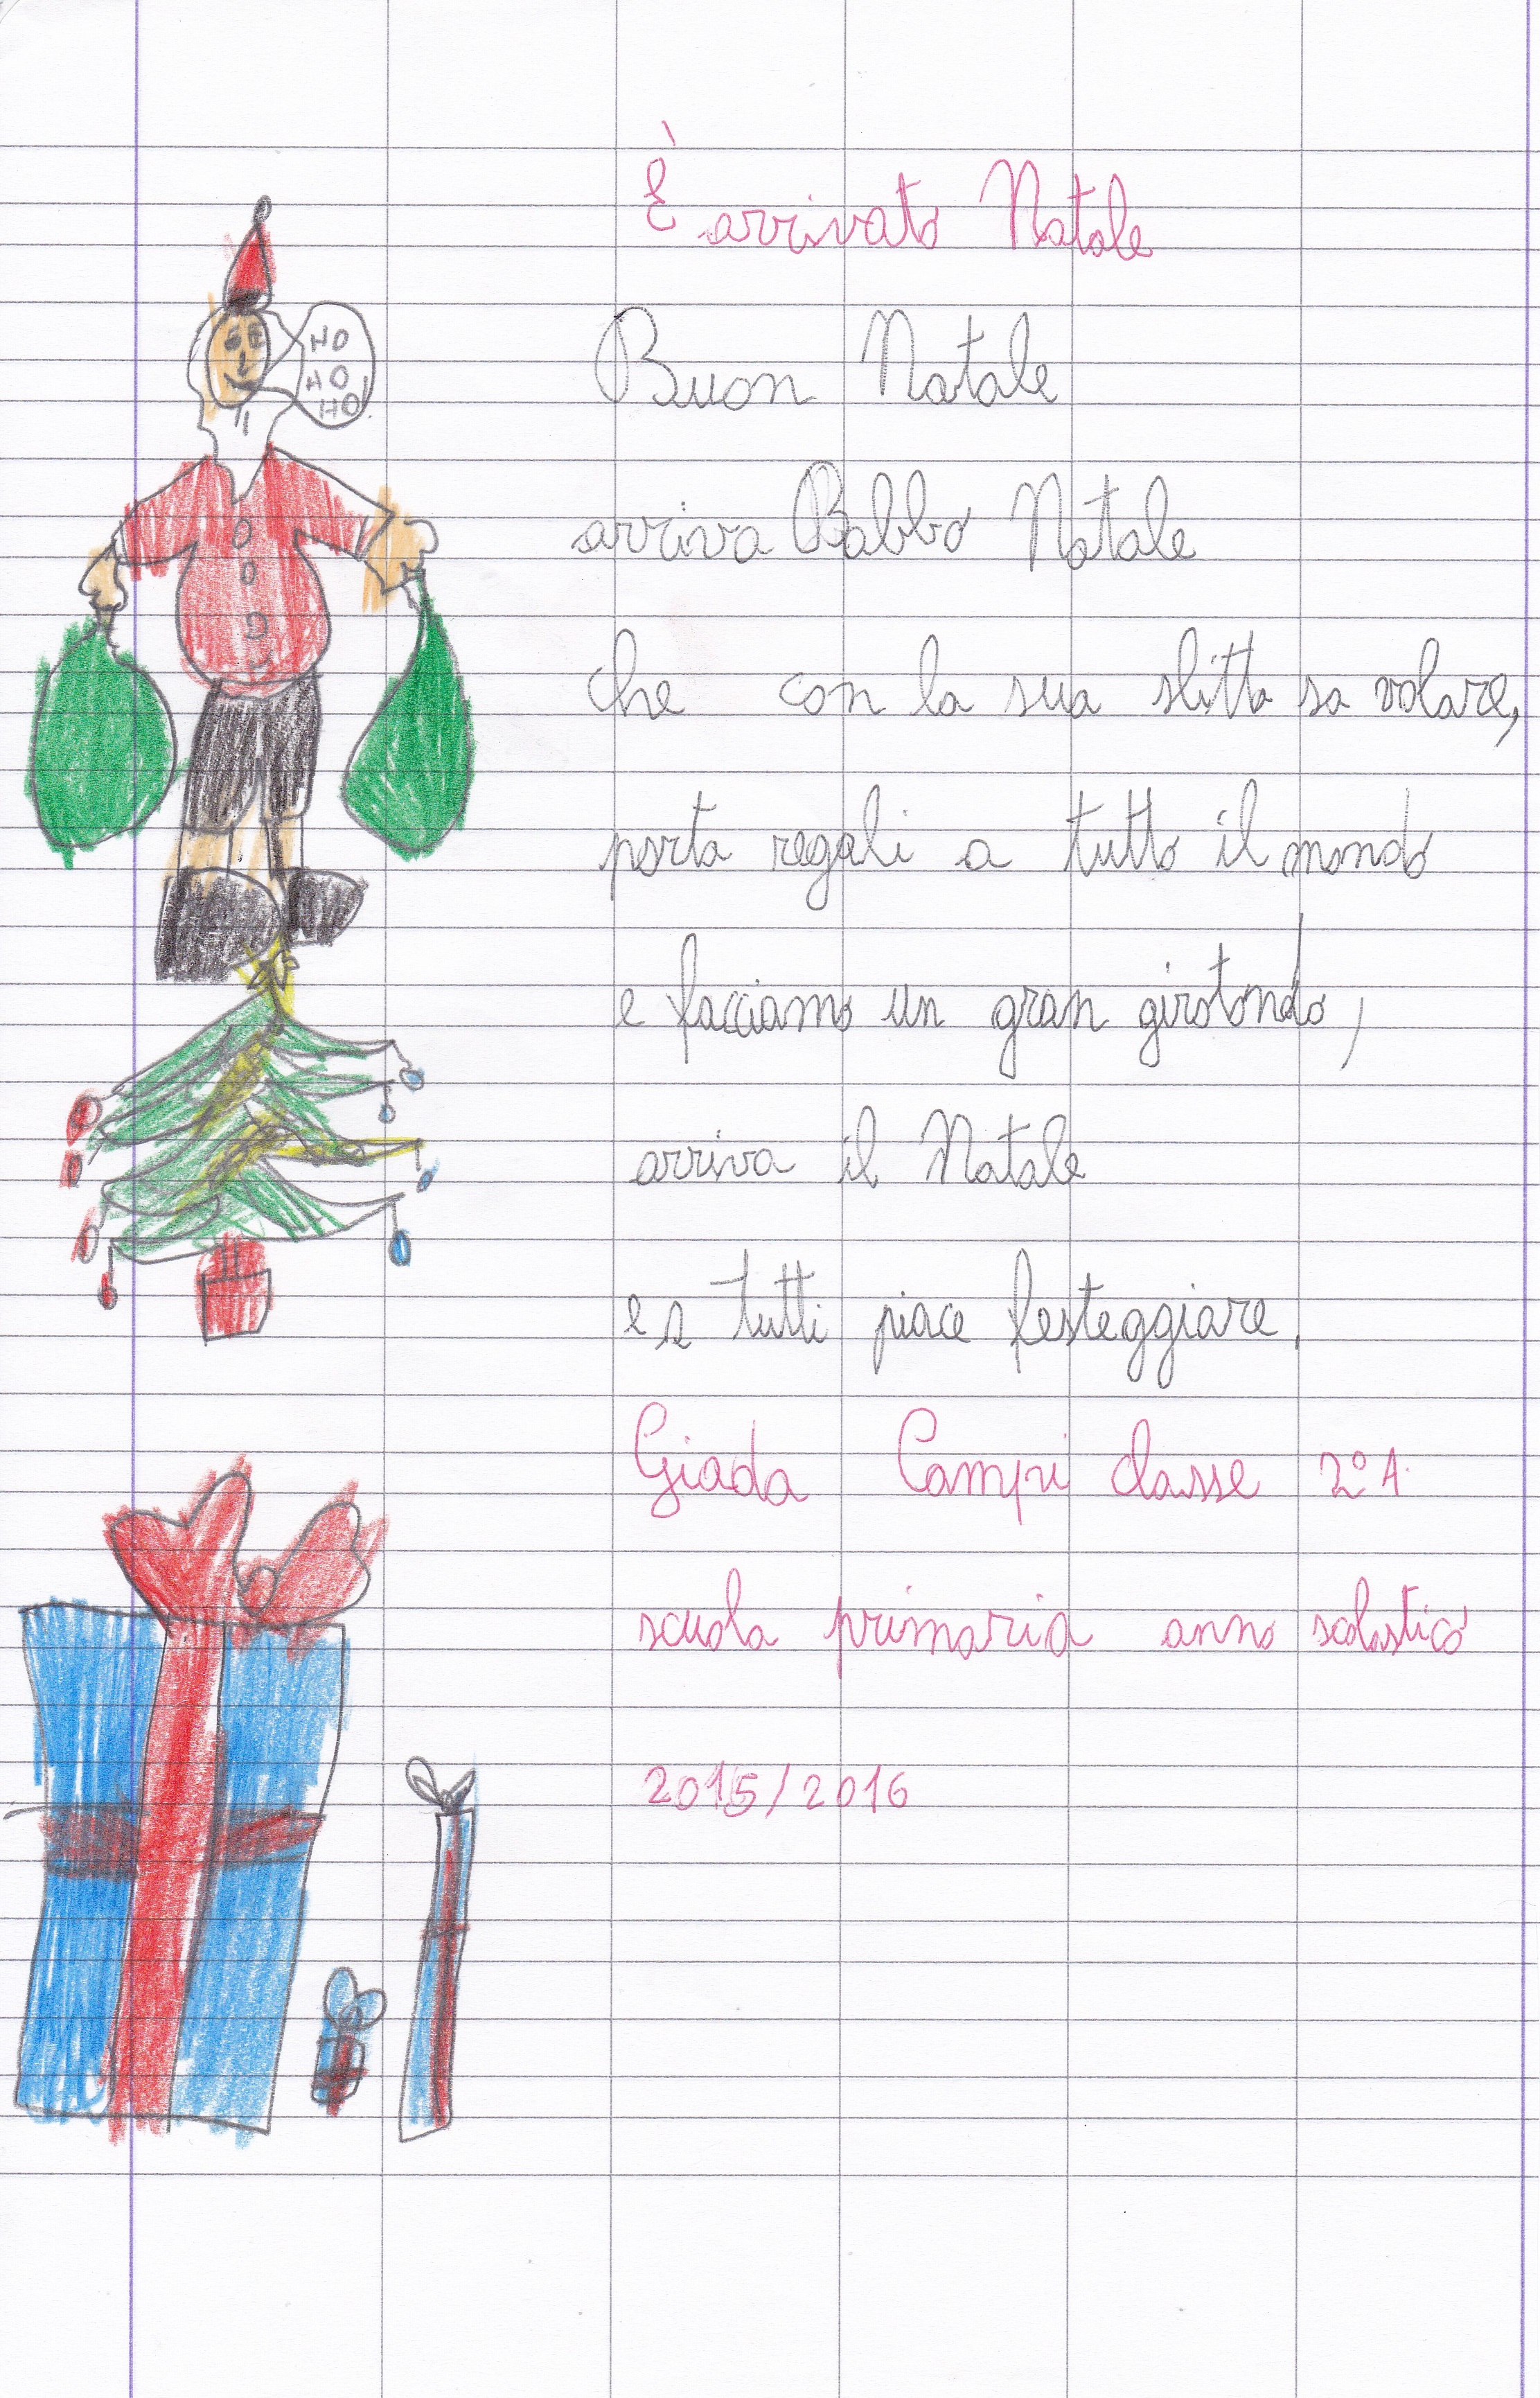 È arrivato Natale
HO
HO
HO!
Buon Natale
arriva Babbo Natale
che con la sua slitta sa volare,
porta regali a tutto il mondo
e facciamo un gran girotondo,
arriva il Natale
e a tutti piace festeggiare.
Giada Campi classe 2° A.
scuola primaria anno scolastico
2015/2016